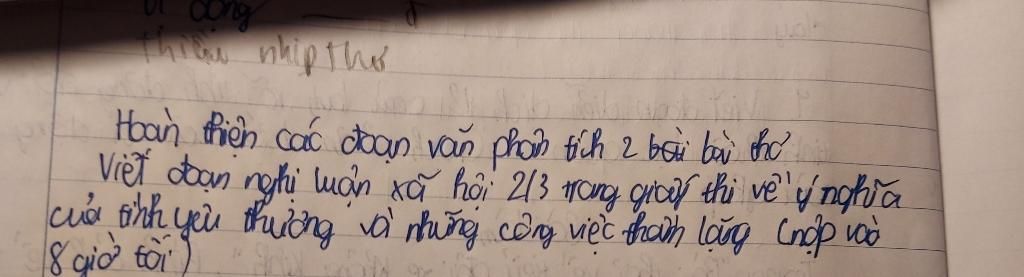 động
thiếu nhịp thơ
Hoàn thiện các đoạn văn phân tích 2 bài bài thơ
Viết đoạn nghị luận xã hội 2/3 trang giấy thi về "ý nghĩa
của tình yêu thương và những công việc thầm lặng (nộp vào
8 giờ tối)